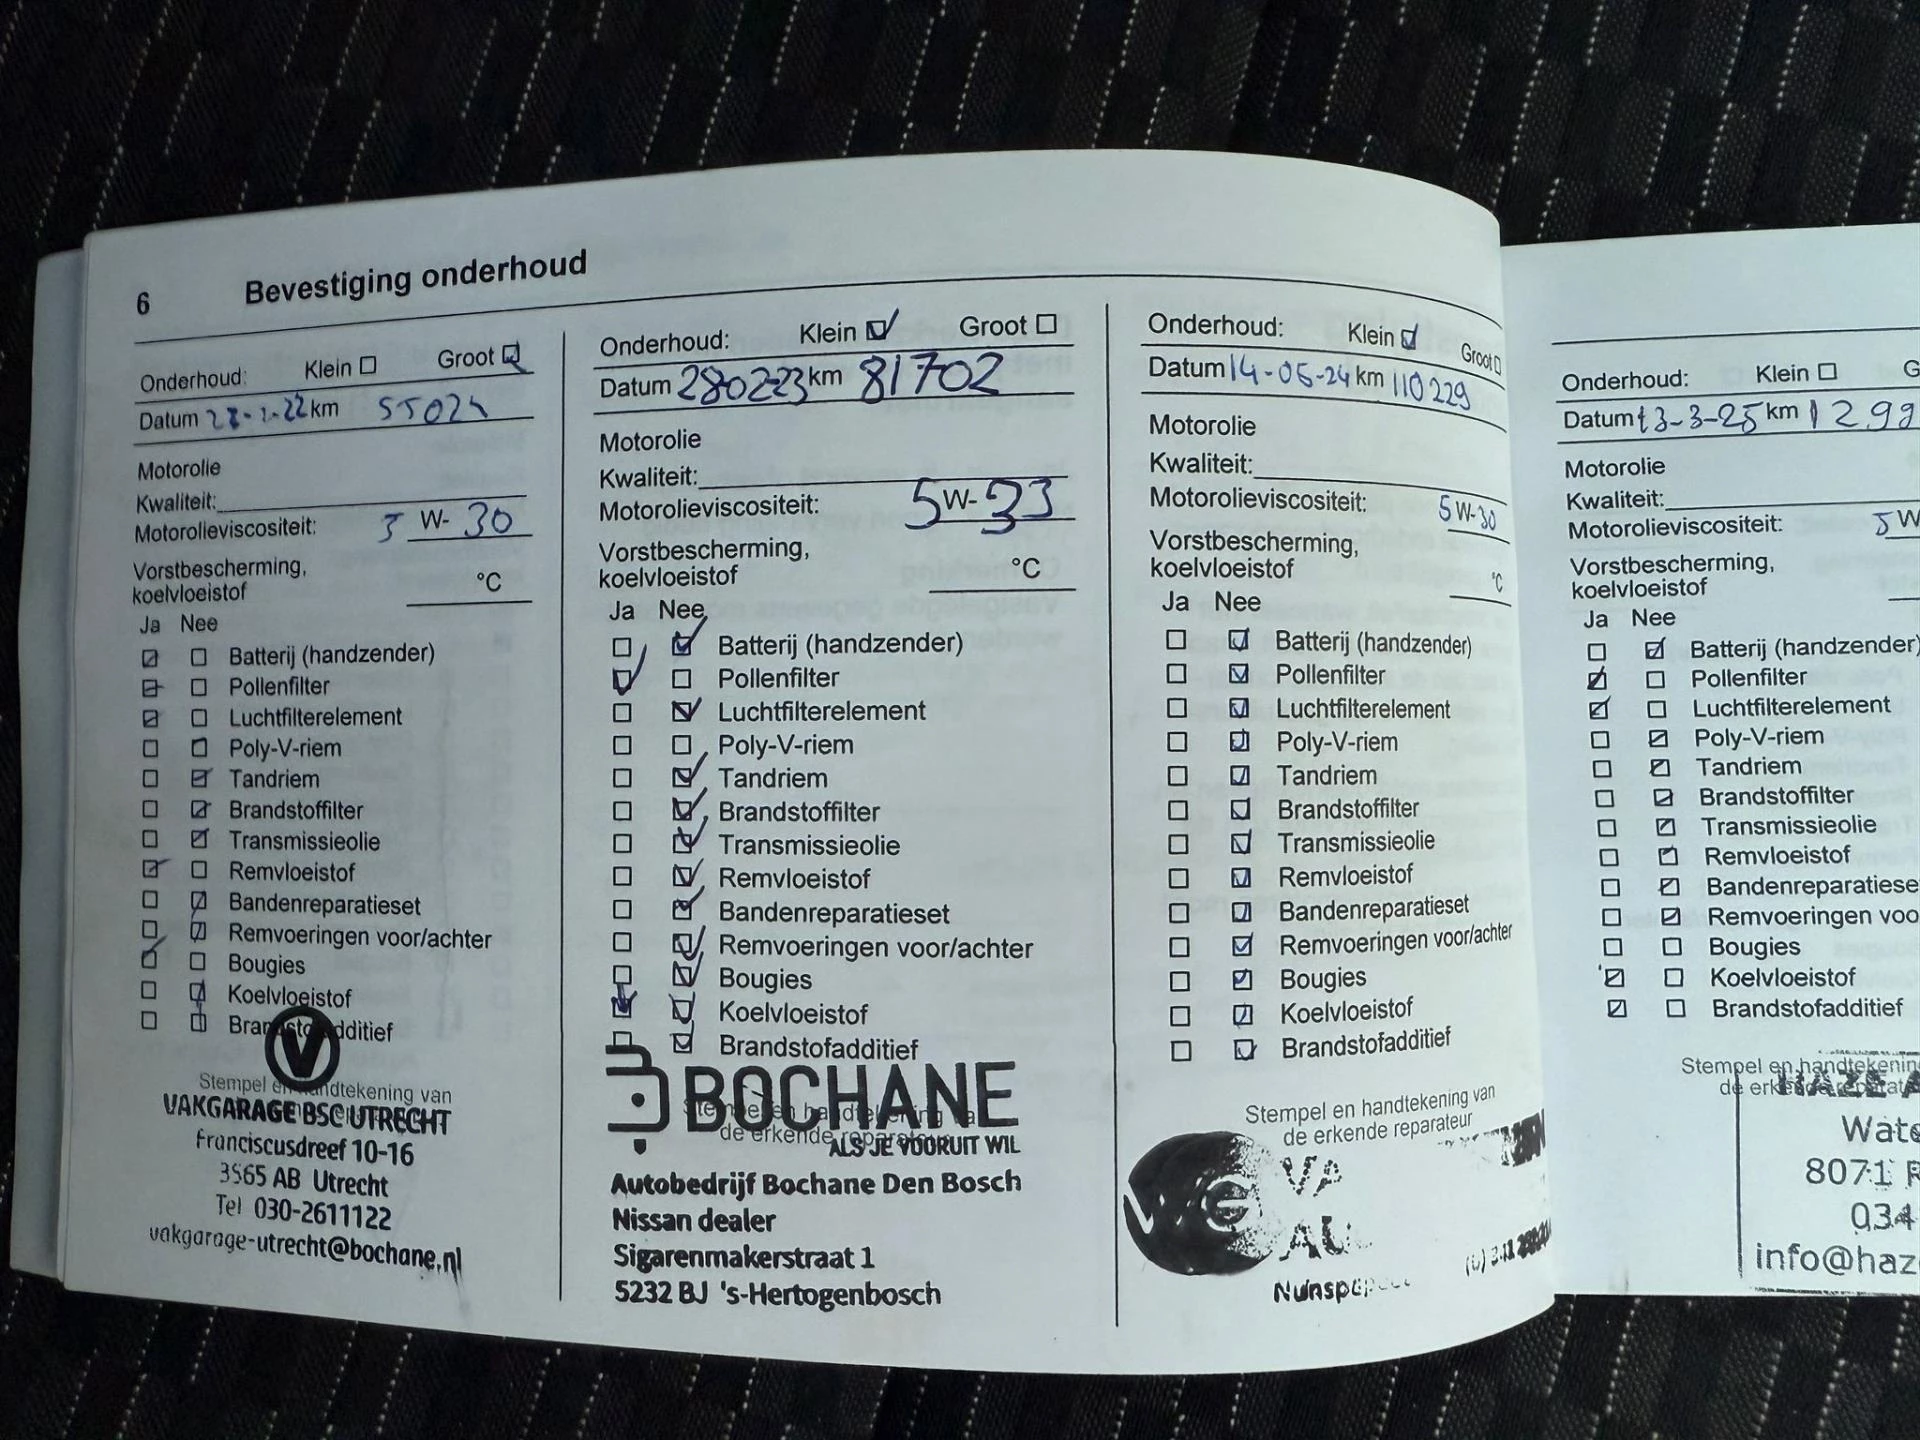 6 Bevestiging onderhoud
Onderhoud: Klein Groot
Datum km
Motorolie
Kwaliteit:
Motorolieviscositeit: 5 W- 30
Vorstbescherming,
koelvloeistof °C
Ja Nee
Batterij (handzender)
Pollenfilter
Luchtfilterelement
Poly-V-riem
Tandriem
Brandstoffilter
Transmissieolie
Remvloeistof
Bandenreparatieset
Remvoeringen voor/achter
Bougies
Koelvloeistof
Brandstofadditief
Stempel en handtekening van
VAKGARAGE BSC UTRECHT
Franciscusdreef 10-16
3565 AB Utrecht
Tel 030-2611122
vakgarage-utrecht@bochane.nl
Onderhoud: Klein Groot
Datum 280223 km 81702
Motorolie
Kwaliteit:
Motorolieviscositeit: 5 W-
Vorstbescherming,
koelvloeistof °C
Ja Nee
Batterij (handzender)
Pollenfilter
Luchtfilterelement
Poly-V-riem
Tandriem
Brandstoffilter
Transmissieolie
Remvloeistof
Bandenreparatieset
Remvoeringen voor/achter
Bougies
Koelvloeistof
Brandstofadditief
BOCHANE
Stempel en handtekening van
de erkende reparateur
ALS JE VOORUIT WIL
Autobedrijf Bochane Den Bosch
Nissan dealer
Sigarenmakerstraat 1
5232 BJ 's-Hertogenbosch
Onderhoud: Klein Groot
Datum 14-05-24 km 110229
Motorolie
Kwaliteit:
Motorolieviscositeit: 5 W-30
Vorstbescherming,
koelvloeistof °C
Ja Nee
Batterij (handzender)
Pollenfilter
Luchtfilterelement
Poly-V-riem
Tandriem
Brandstoffilter
Transmissieolie
Remvloeistof
Bandenreparatieset
Remvoeringen voor/achter
Bougies
Koelvloeistof
Brandstofadditief
Stempel en handtekening van
de erkende reparateur
Onderhoud: Klein G
Datum 13-3-25 km 1299
Motorolie
Kwaliteit:
Motorolieviscositeit: 5 W
Vorstbescherming,
koelvloeistof
Ja Nee
Batterij (handzender)
Pollenfilter
Luchtfilterelement
Poly-V-riem
Tandriem
Brandstoffilter
Transmissieolie
Remvloeistof
Bandenreparatieset
Remvoeringen voo
Bougies
Koelvloeistof
Brandstofadditief
Stempel en handtekening
de erkende reparat
HAZE A
Wate
8071
034
info@haz